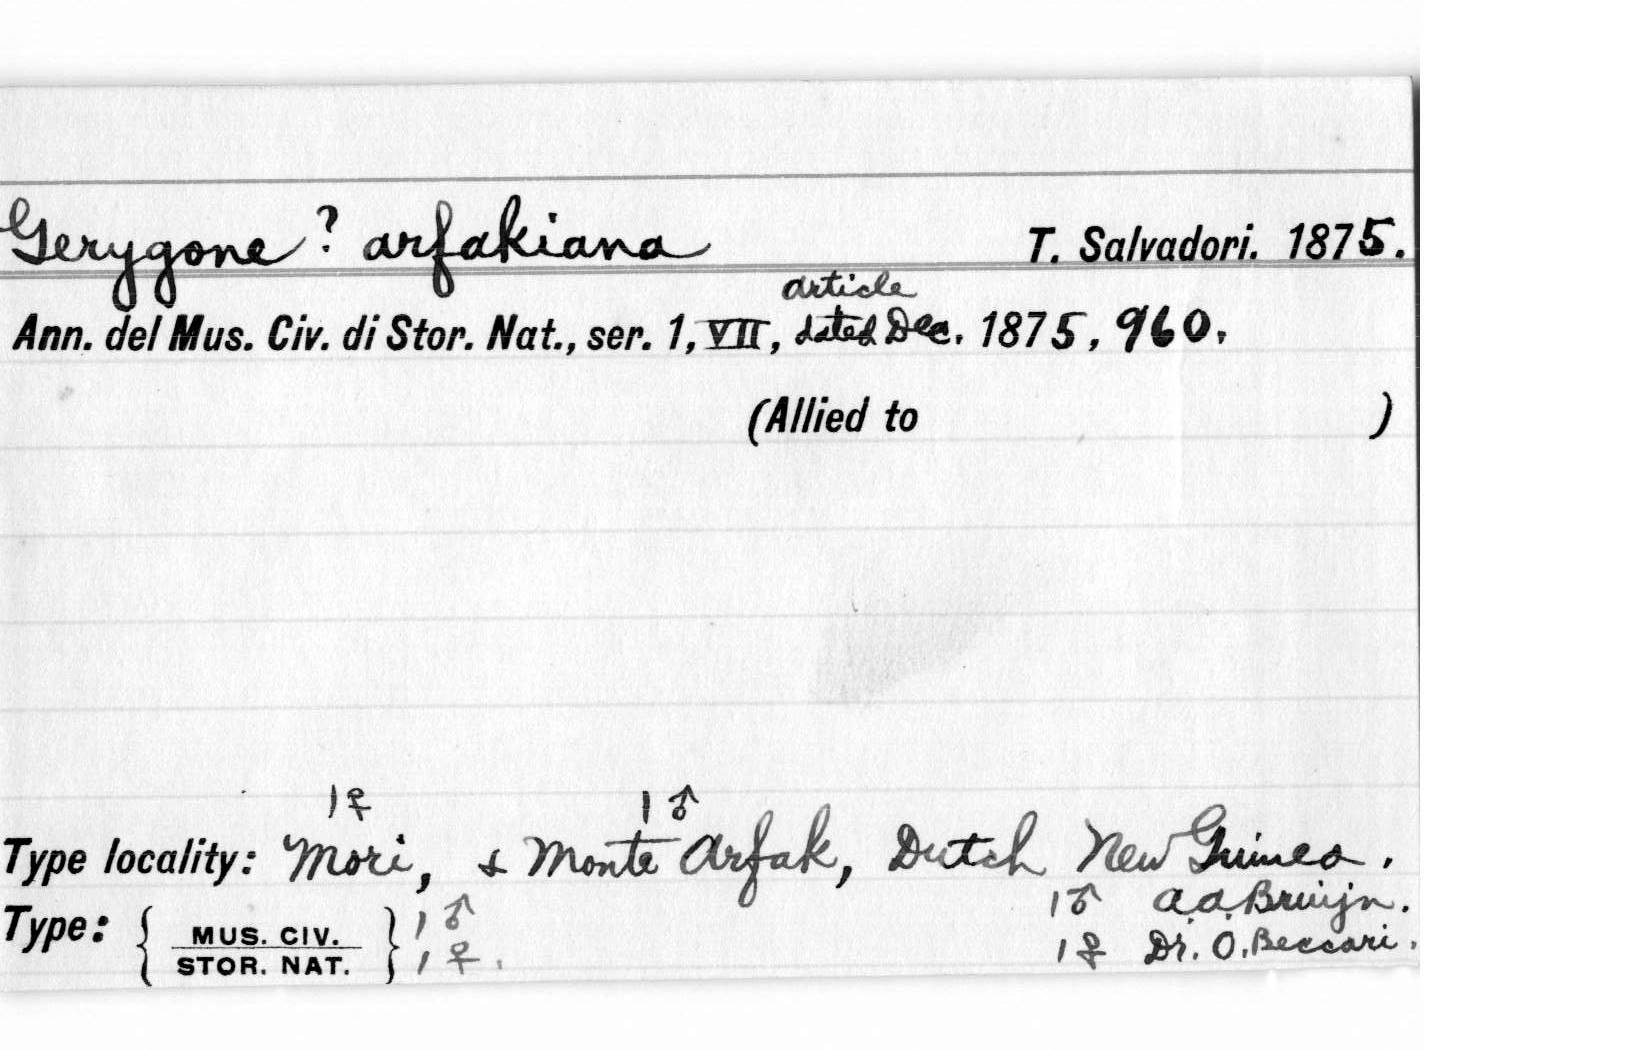 Gerygone ? arfakiana T. Salvadori. 1875.
article
Ann. del Mus. Civ. di Stor. Nat., ser. 1, VII, dated Dec. 1875, 960.
(Allied to )
1♀ 1♂
Type locality: Mori, & Monte Arfak, Dutch New Guinea.
1♂ A.A. Bruijn.
Type: { MUS. CIV. } 1♂
STOR. NAT. 1♀. 1♀ Dr. O. Beccari.